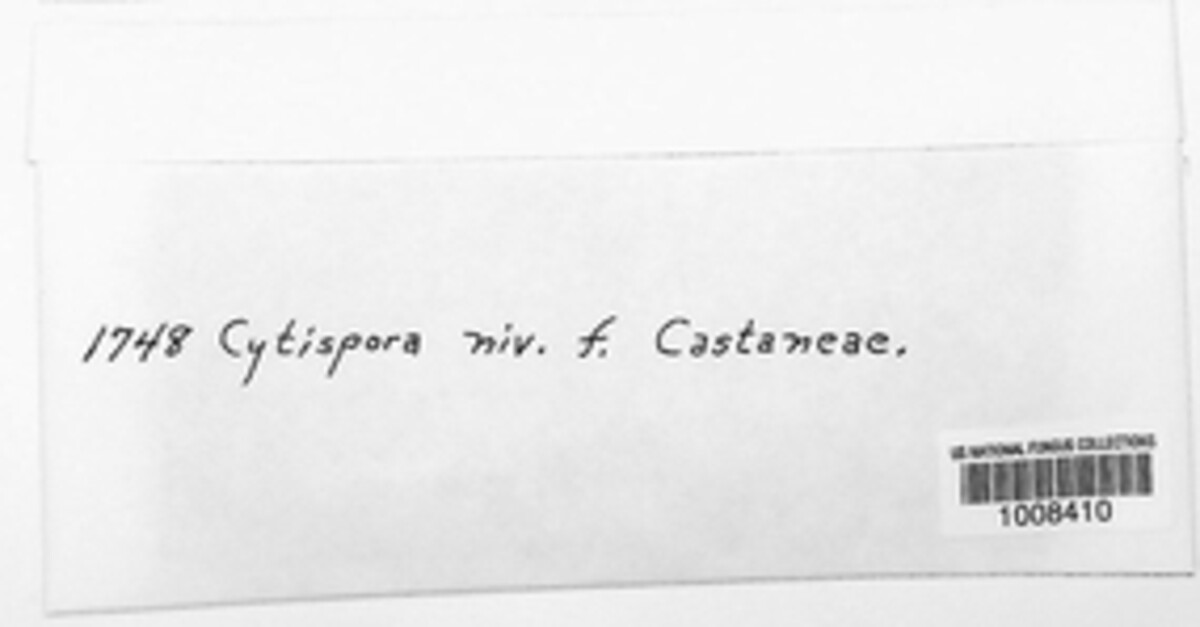 1748 Cytispora niv. f. Castaneae.
US NATIONAL FUNGUS COLLECTIONS
1008410